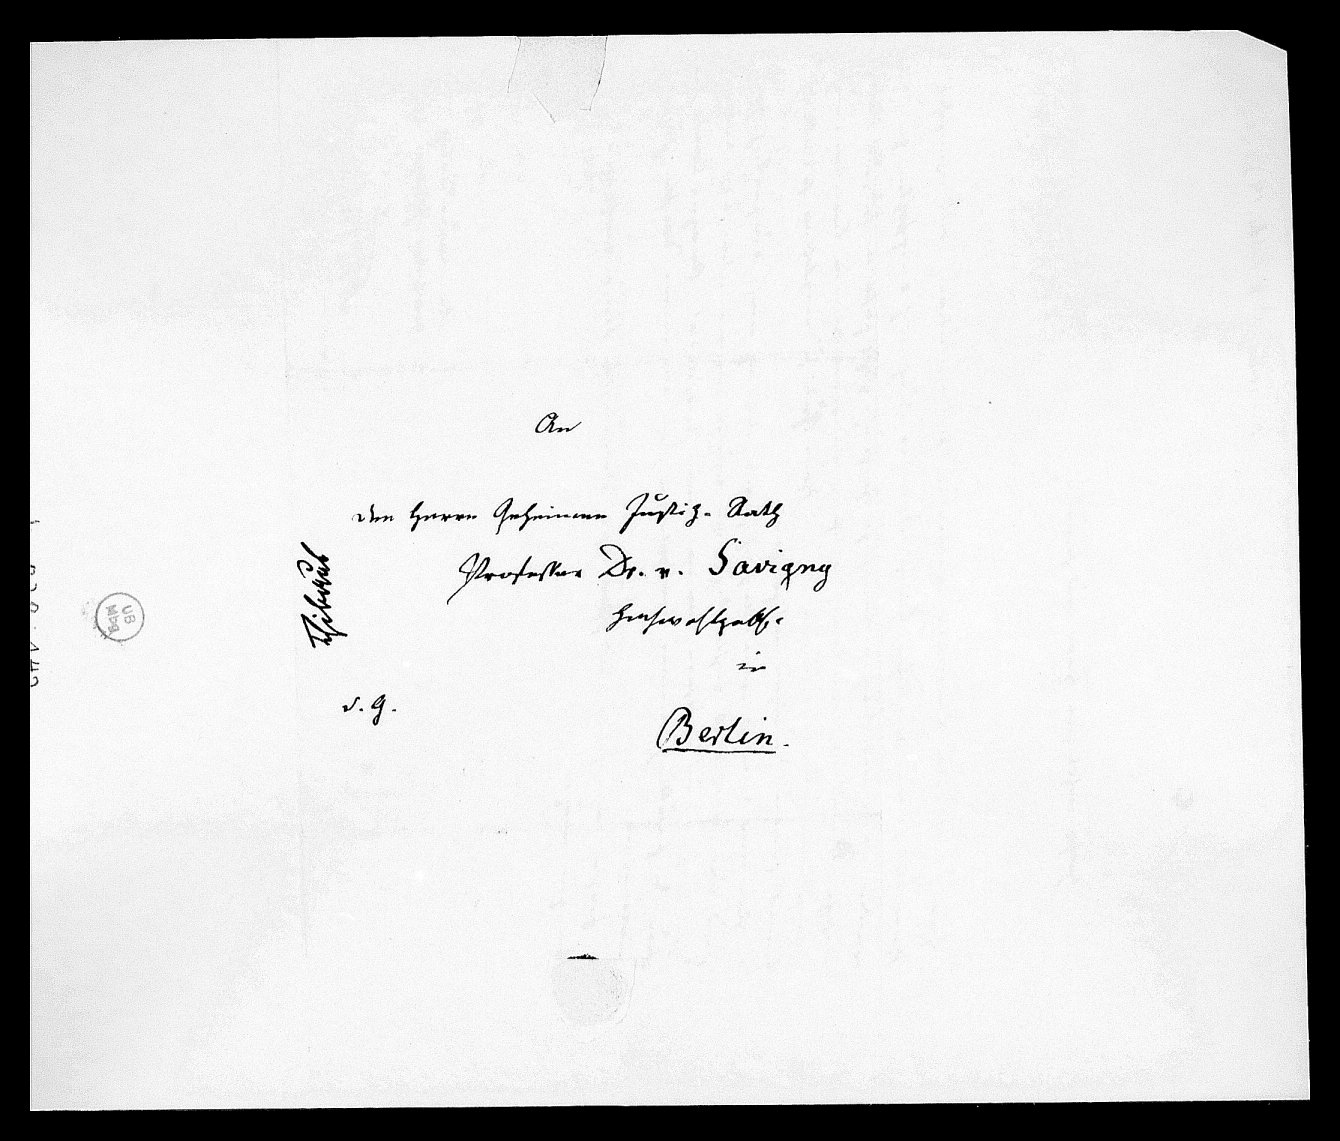 An
den Herrn Geheimen Justiz-Rath
Professor Dr. v. Savigny
Hochwohlgeb.
in
Berlin.
d. G.
UB
Mbg